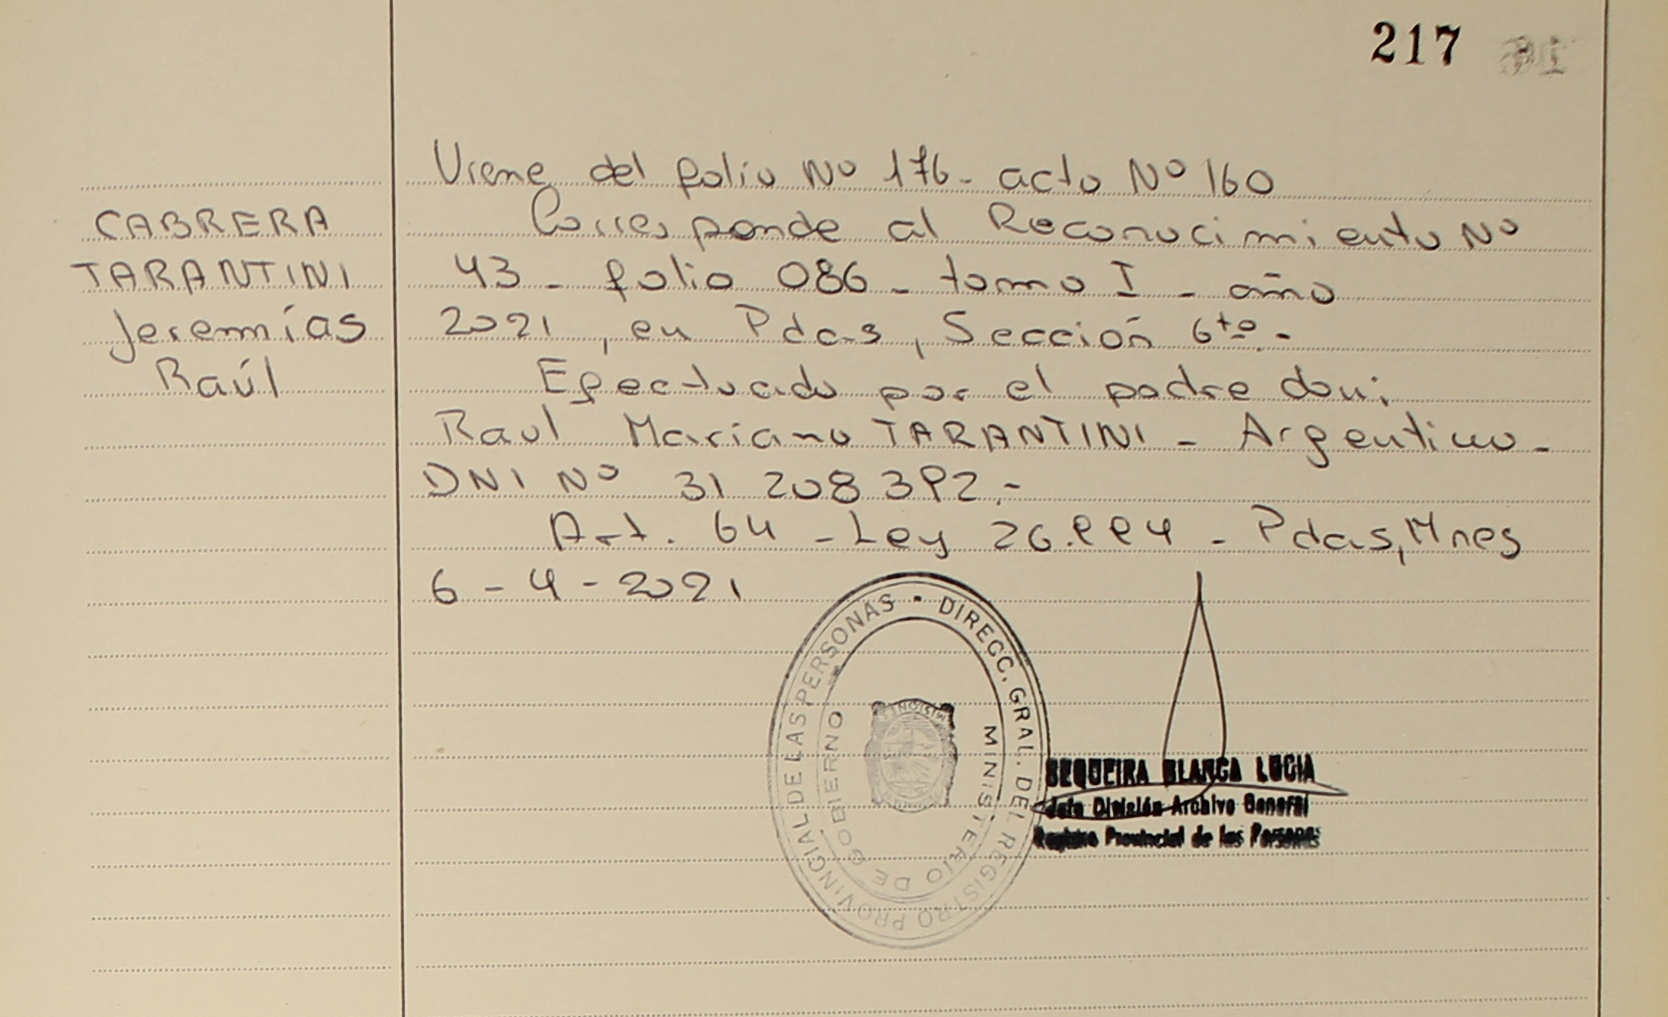 217
CABRERA
TARANTINI
Jeremías
Raúl
Viene del folio Nº 176 - acta Nº 160
Corresponde al Reconocimiento Nº
43 - folio 086 - tomo I - año
2021, en Pdas, Sección 6ta.-
Efectuado por el padre don:
Raul Mariano TARANTINI - Argentino -
DNI Nº 31 208 392.-
Art. 64 - Ley 26.994 - Pdas, Mnes
6 - 4 - 2021
DIRECC. GRAL. DEL REGISTRO PROVINCIAL DE LAS PERSONAS
MINISTERIO DE GOBIERNO
MISIONES
SEQUEIRA BLANCA LUCIA
Jefa División Archivo General
Registro Provincial de las Personas